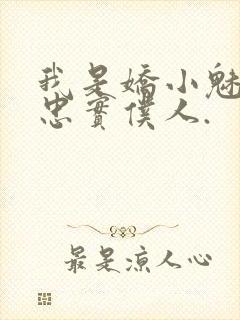 我是嬌小魅
忠實僕人.
最是涼人心